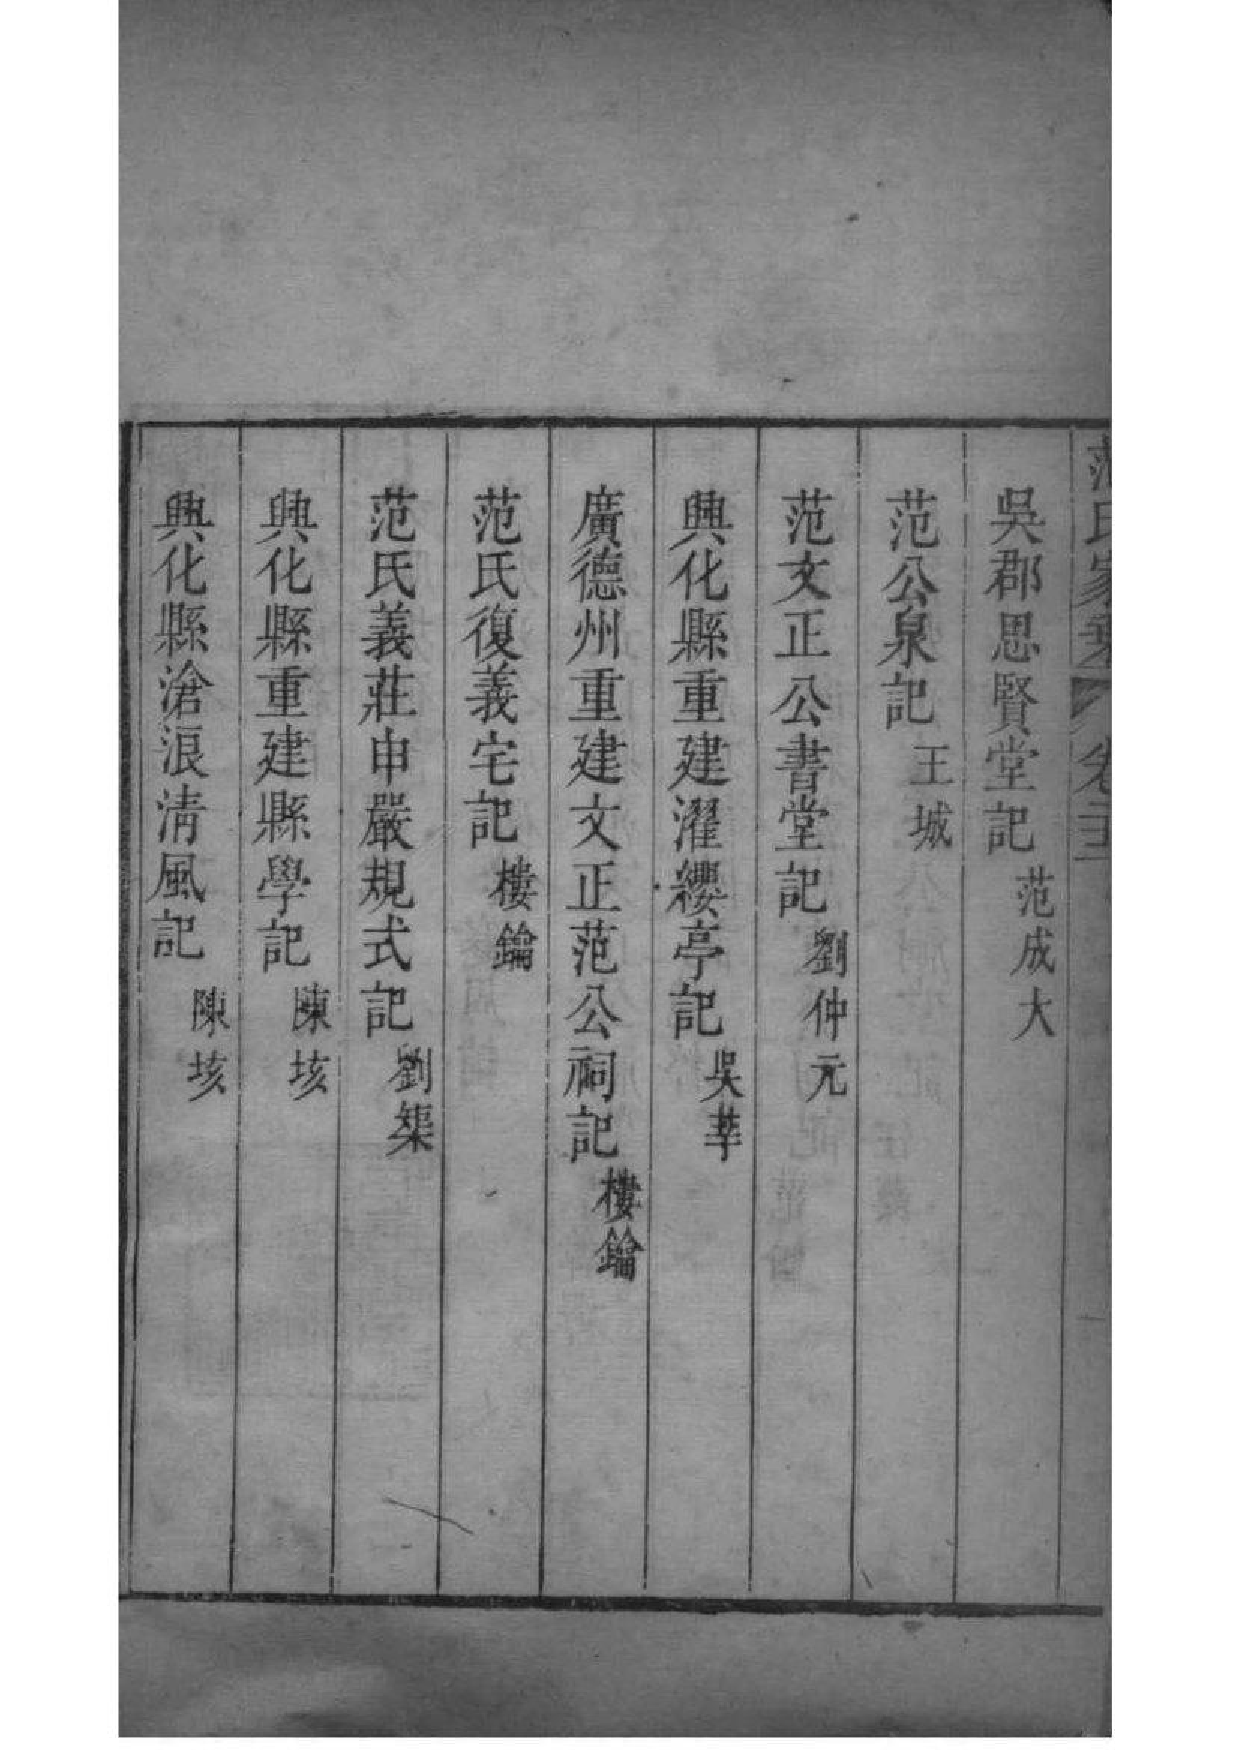 范氏家乘 卷
吳郡思賢堂記 范成大
范公泉記 王城
范文正公書堂記 劉仲元
興化縣重建濯纓亭記 吳莘
廣德州重建文正范公祠記 樓鑰
范氏復義宅記 樓鑰
范氏義莊申嚴規式記 劉榘
興化縣重建縣學記 陳垓
興化縣滄浪清風記 陳垓